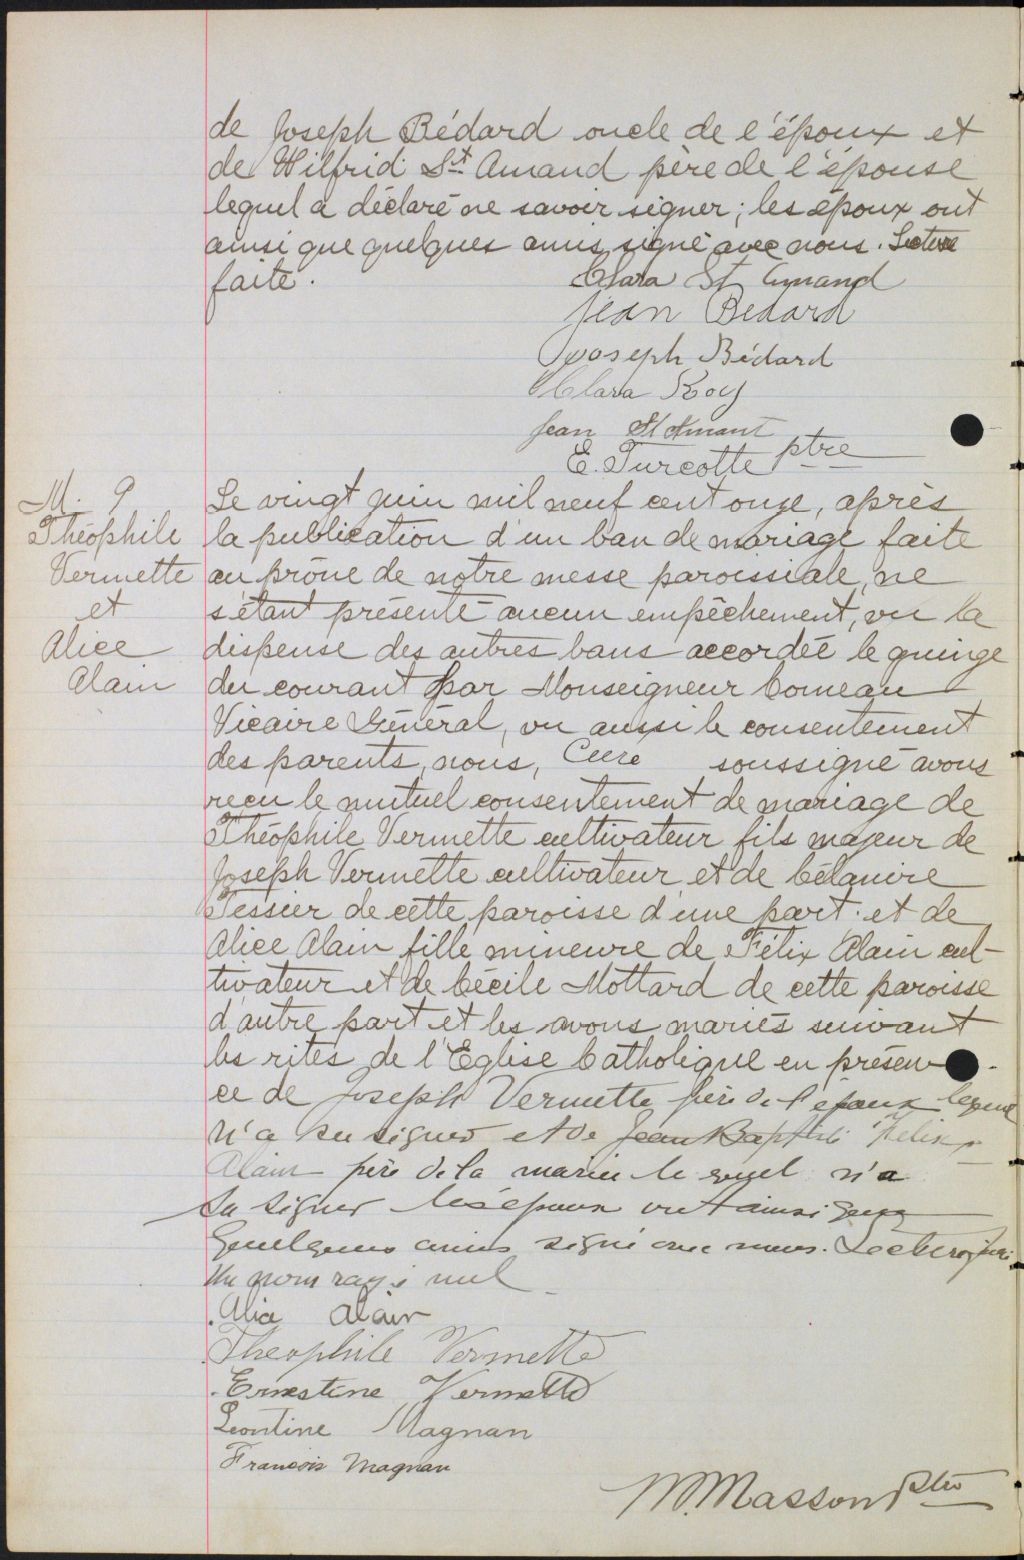 de Joseph Bédard oncle de l'époux et
de Wilfrid St Amand père de l'épouse
lequel a déclaré ne savoir signer; les époux ont
ainsi que quelques amis signé avec nous. Lecture
faite.
Clara St Amand
Jean Bédard
Joseph Bédard
Clara Roy
Jean St Amant
E. Turcotte ptre
M. 9
Théophile
Vermette
et
Alice
Alain
Le vingt juin mil neuf cent onze, après
la publication d'un ban de mariage faite
au prône de notre messe paroissiale, ne
s'étant présenté aucun empêchement, vu la
dispense des autres bans accordée le quinze
du courant par Monseigneur Comeau
Vicaire Général, vu aussi le consentement
des parents, nous, Curé soussigné avons
reçu le mutuel consentement de mariage de
Théophile Vermette cultivateur fils majeur de
Joseph Vermette cultivateur et de Célanire
Tessier de cette paroisse d'une part; et de
Alice Alain fille mineure de Félix Alain cul-
tivateur et de Cécile Mottard de cette paroisse
d'autre part et les avons mariés suivant
les rites de l'Eglise Catholique en présen-
ce de Joseph Vermette père de l'époux lequel
n'a su signer et de Jean Baptiste Felix
Alain père de la mariée lequel n'a
su signer les époux ont ainsi que
quelques amis signé avec nous. Lecture faite
Un nom rayé nul
Alice Alain
Theophile Vermette
Ernestine Vermette
Leontine Magnan
Francois Magnan
M. Masson Ptre